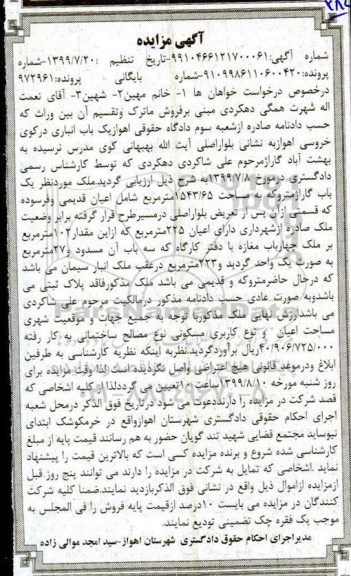 آگهی مزایده
شماره آگهی:۹۹۱۰۴۶۶۱۲۱۷۰۰۰۶۱-تاریخ تنظیم :۱۳۹۹/۷/۲۰-شماره
پرونده:۹۱۰۹۹۸۶۱۱۰۶۰۰۴۲۰-شماره بایگانی پرونده:۹۷۲۹۶۱
درخصوص درخواست خواهان ها ۱- خانم مهین۲- شهین۳- آقای نعمت
اله شهرت همگی دهکردی مبنی برفروش ماترک وتقسیم آن بین وراث که
حسب دادنامه صادره ازشعبه سوم دادگاه حقوقی اهوازیک باب انباری درکوی
خروسی اهوازبه نشانی بلواراصلی آیت الله بهبهانی کوی مدرس نرسیده به
بهشت آباد گاراژمرحوم علی شاکردی دهکردی که توسط کارشناس رسمی
دادگستری درمورخ ۱۳۹۹/۷/۸به شرح ذیل ارزیابی گردید.ملک موردنظر یک
باب گاراژمتروکه به مساحت ۱۵۴۳/۶۵مترمربع شامل اعیان قدیمی وفرسوده
که قسمتی ازآن پس از تعریض بلواراصلی درمسیرطرح قرار گرفته برابر وضعیت
ملک صادره ازشهرداری دارای اعیان ۲۲۵مترمربع که ازاین مقدار۱۰۲مترمربع
بر ملک چهارباب مغازه با دفتر کارگاه که سه باب آن مسدود و۲۷مترمربع
به صورت یک واحد گردید و۲۲۳مترمربع درعقب ملک انبار سیمان می باشد
که درحال حاضرمتروکه و قدیمی می باشد ملک مذکورفاقد پلاک ثبتی می
باشدوبه صورت عادی حسب دادنامه مذکور درمالکیت مرحوم علی شاکردی
می باشدارزش نهایی ملک مذکورباتوجه به جمیع جهات و موقعیت شهری
مساحت اعیان و نوع کاربری مسکونی نوع مصالح ساختمانی به کار رفته
۴۰/۹۰۶/۷۲۵/۰۰۰ریال برآوردگردید.نظریه اینکه نظریه کارشناسی به طرفین
ابلاغ ودرموعد قانونی هیچ اعتراضی واصل نگردیده است لذا وقت مزایده برای
روز شنبه مورخه ۱۳۹۹/۸/۱۰ساعت ۱۰تعیین می گرددلذا از کلیه اشخاصی که
قصد شرکت در مزایده را دارنددعوت می شود درتاریخ فوق الذکر درمحل شعبه
اجرای احکام حقوقی دادگستری شهرستان اهوازواقع در خرمکوشک ابتدای
نیوساید مجتمع قضایی شهید تند گویان حضور به هم رسانند قیمت پایه از مبلغ
کارشناسی شده شروع و برنده مزایده کسی است که بالاترین قیمت را پیشنهاد
نماید .اشخاصی که تمایل به شرکت در مزایده را دارند می توانند پنج روز قبل
ازمزایده ازاموال ذیل واقع در نشانی فوق الذکربازدید نمایند.ضمنا کلیه شرکت
کنندگان در مزایده می بایست ۱۰درصد ازقیمت پایه فروش را فی المجلس به
موجب یک فقره چک تضمینی تودیع نمایند.
مدیراجرای احکام حقوق دادگستری شهرستان اهواز-سید امجد موالی زاده